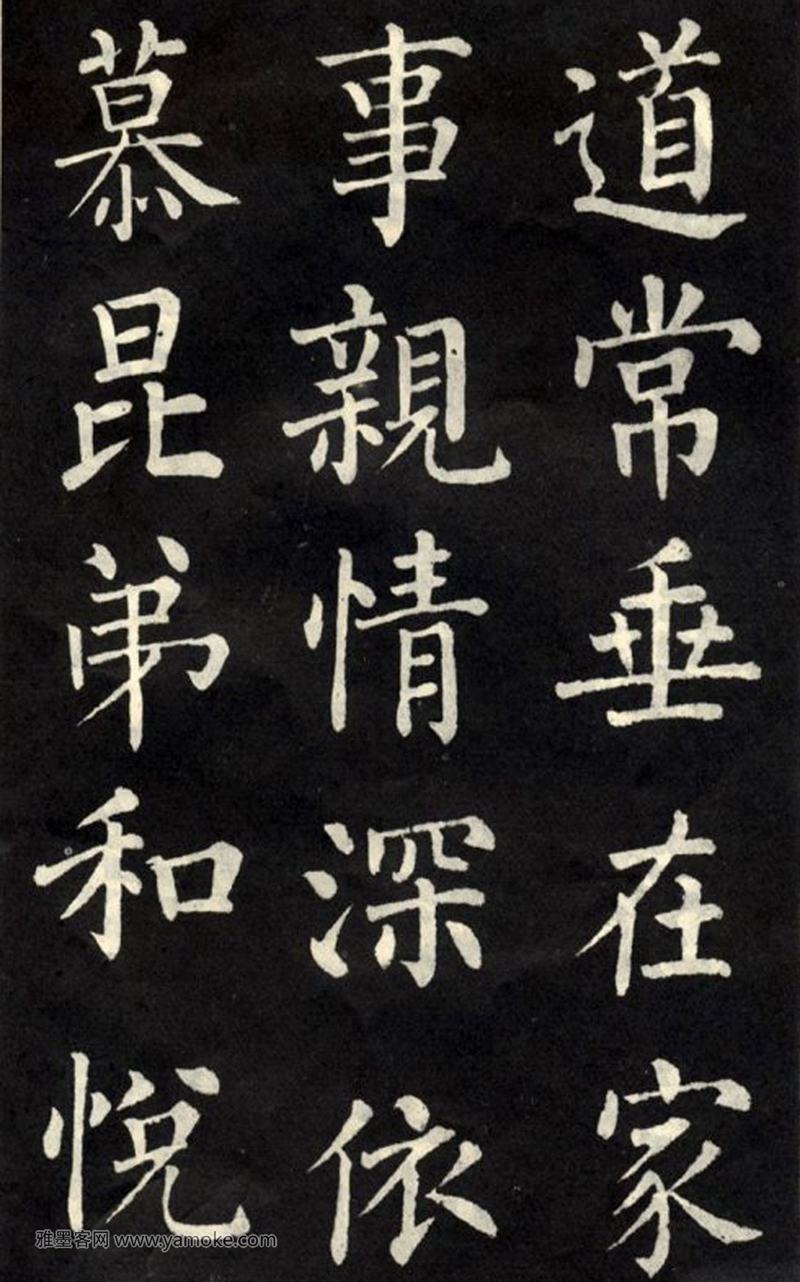 道常垂在家
事親情深依
慕昆弟和悅
雅墨客网 www.yamoke.com